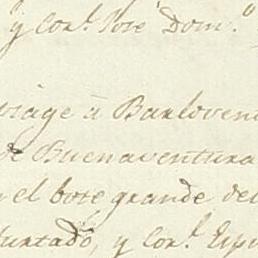 y Cor.l José Dom.o
viage à Barloven
de Buenaventura
n el bote grande del
urtado, y Cor.l Espi